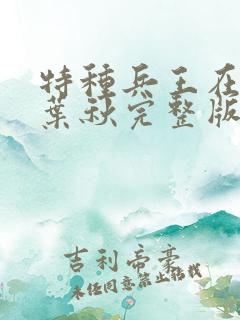 特種兵王在
葉秋完整版
吉利帝豪
未经同意禁止转载